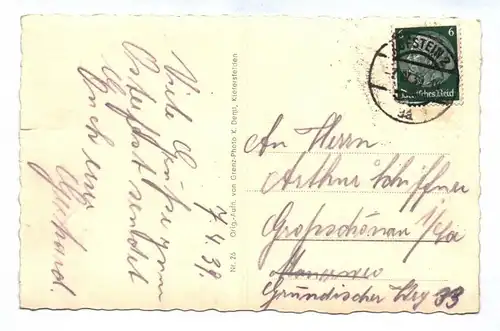 Viele Grüße zum
Osterfest sendet
Euch
Gerhard.
7.4.39.
Nr. 26 Orig.-Aufn. von Grenz-Photo K. Deml, Kiefersfelden
6
KUFSTEIN 2
Deutsches Reich
An Herrn
Arthur Schiffner
Großschönau i/Sa
Gründischer Weg 33